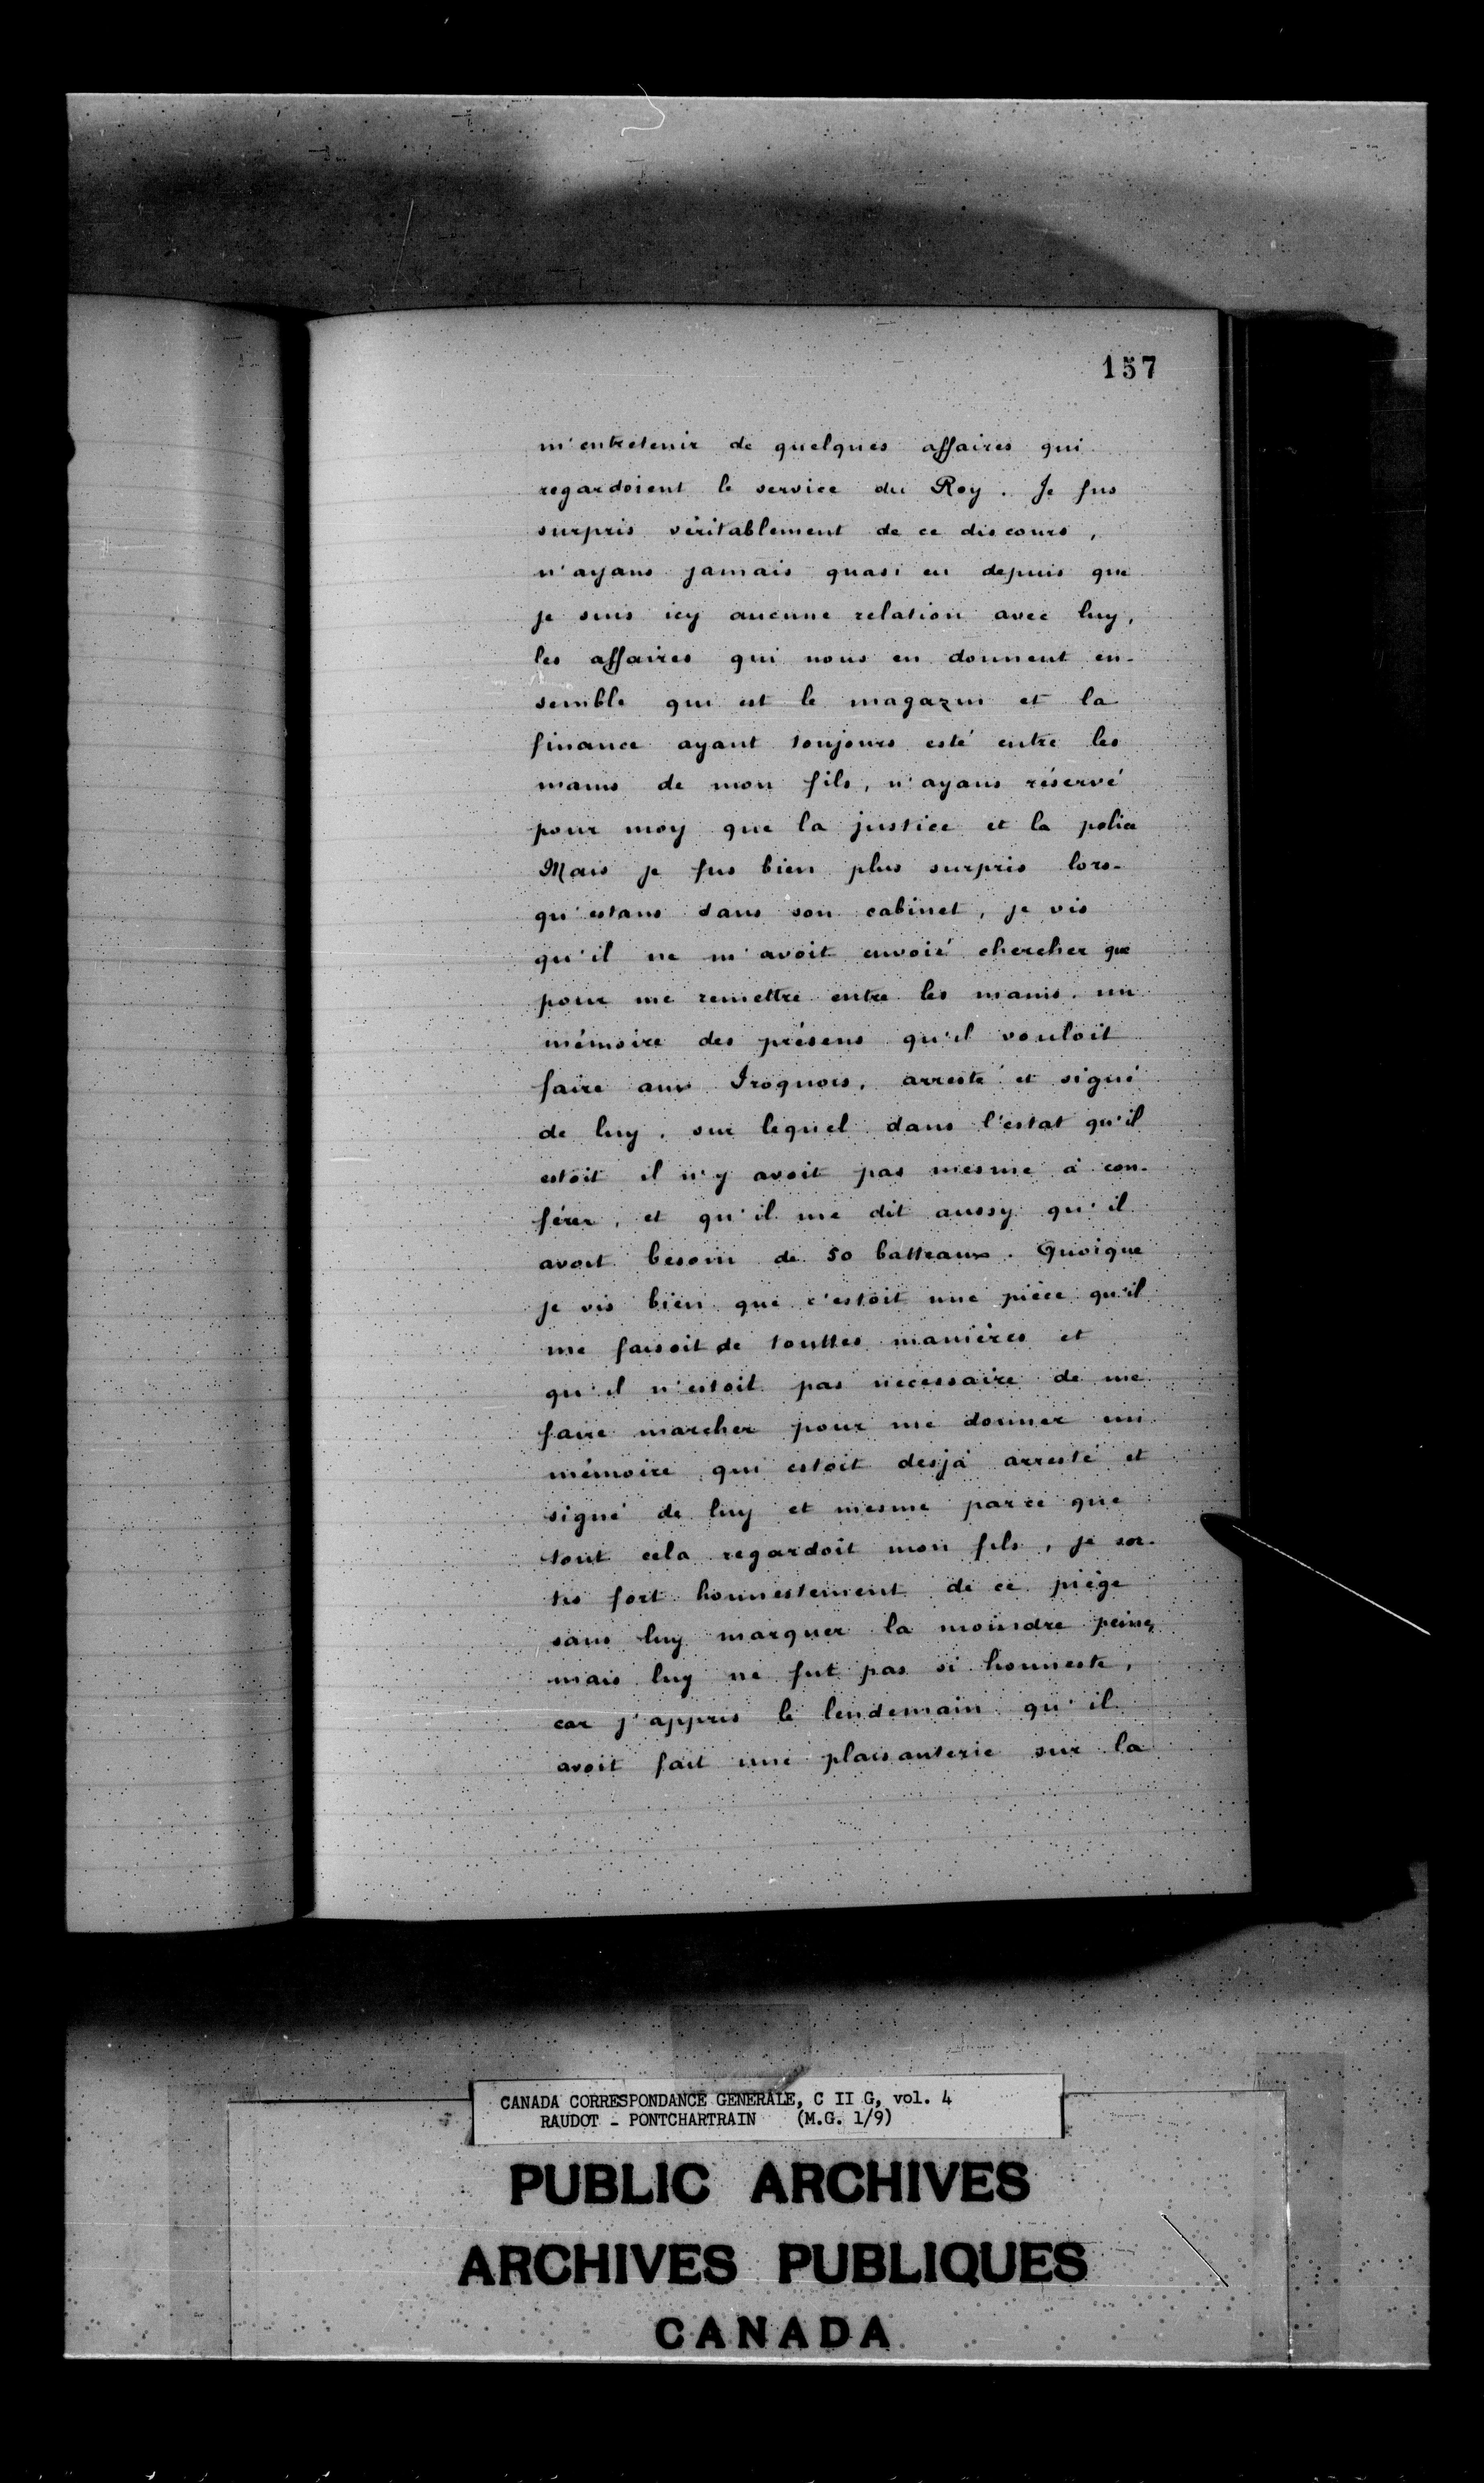 157
m'entretenir de quelques affaires qui
regardoient le service du Roy. Je fus
surpris véritablement de ce discours,
n'ayans jamais quasi eu depuis que
je suis icy aucune relation avec luy,
les affaires qui nous en donnent en-
semble qui est le magazin et la
finance ayant toujours esté entre les
mains de mon fils, n'ayans réservé
pour moy que la justice et la police
Mais je fus bien plus surpris lors-
qu'estans dans son cabinet, je vis
qu'il ne m'avoit envoié chercher que
pour me remettre entre les mains un
mémoire des présens qu'il vouloit
faire aux Iroquois, arresté et signé
de luy, sur lequel dans l'estat qu'il
estoit il n'y avoit pas mesme à con-
férer, et qu'il me dit aussy qu'il
avoit besoin de 50 batteaux. Quoique
je vis bien que c'estoit une pièce qu'il
me faisoit de touttes manières et
qu'il n'estoit pas nécessaire de me
faire marcher pour me donner un
mémoire qui estoit desjà arresté et
signé de luy et mesme parce que
tout cela regardoit mon fils, je sor-
tis fort honnestement de ce piège
sans luy marquer la moindre peine,
mais luy ne fut pas si honneste,
car j'appris le lendemain qu'il
avoit fait une plaisanterie sur la
CANADA CORRESPONDANCE GENERALE, C II G, vol. 4
RAUDOT - PONTCHARTRAIN (M.G. 1/9)
PUBLIC ARCHIVES
ARCHIVES PUBLIQUES
CANADA